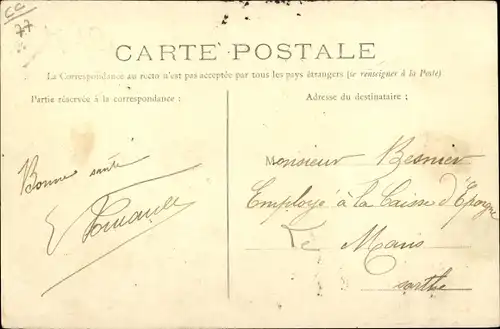 CC
77
CARTE POSTALE
La Correspondance au recto n'est pas acceptée par tous les pays étrangers (se renseigner à la Poste)
Partie réservée à la correspondance :
Adresse du destinataire :
Bonne santé
Monsieur Besnier
Employé à la Caisse d'Epargne
Le Mans
Sarthe